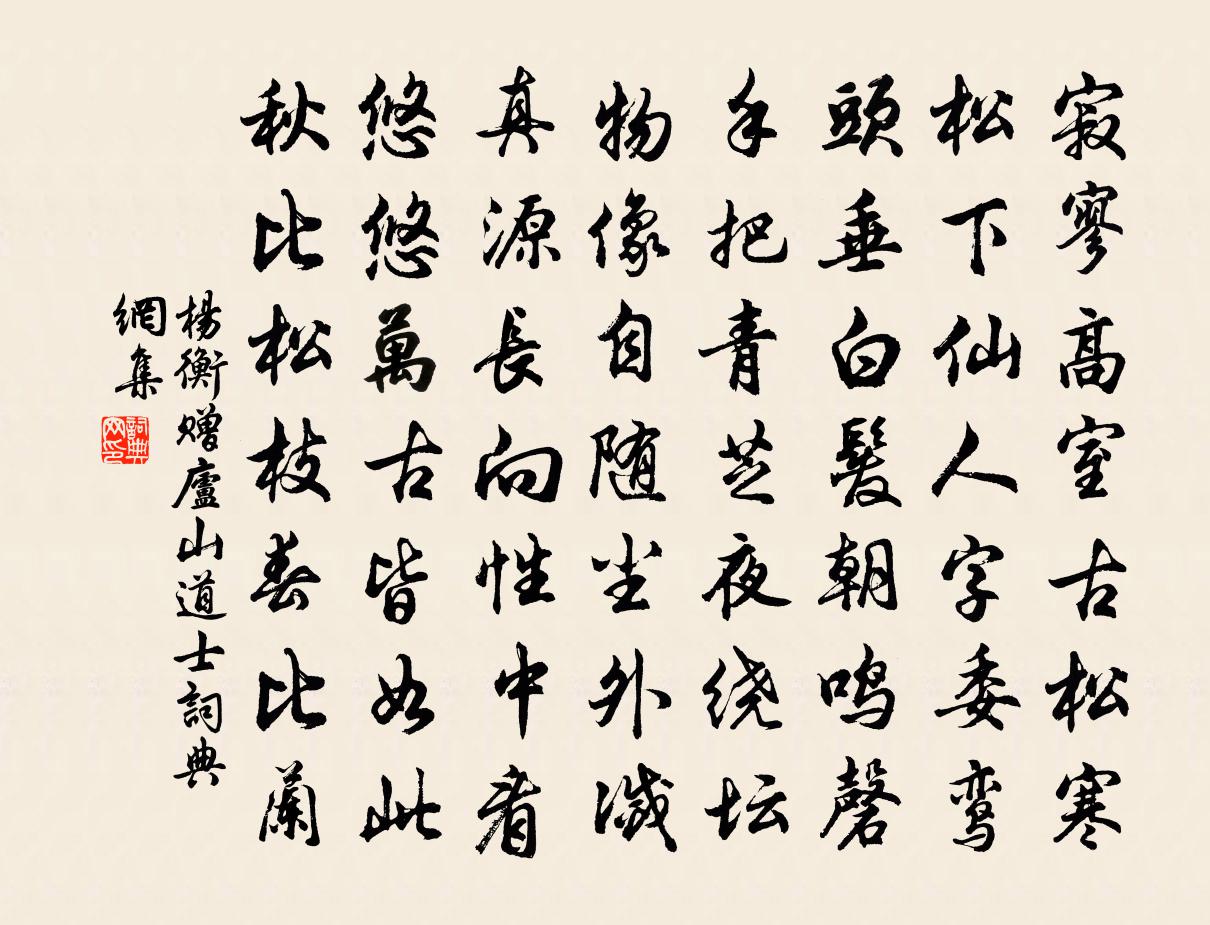 寂寥高室古松寒
松下仙人字委鸾
頭垂白髮朝鸣磬
手把青芝夜绕坛
物像自随尘外滅
真源長向性中看
悠悠萬古皆如此
秋比松枝春比蘭
楊衡赠廬山道士詞典
網集
詞典
网印